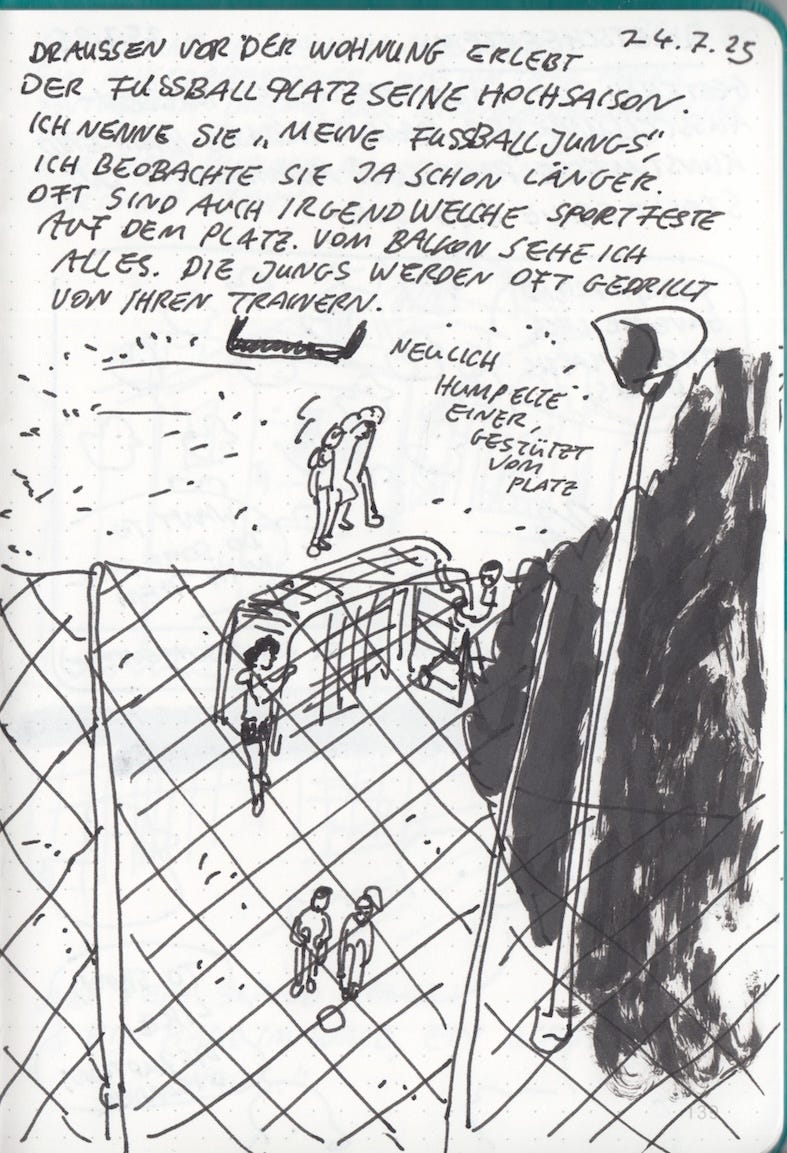 24.7.25
DRAUSSEN VOR DER WOHNUNG ERLEBT
DER FUSSBALLPLATZ SEINE HOCHSAISON.
ICH NENNE SIE „MEINE FUSSBALLJUNGS“,
ICH BEOBACHTE SIE JA SCHON LÄNGER.
OFT SIND AUCH IRGENDWELCHE SPORTFESTE
AUF DEM PLATZ. VOM BALKON SEHE ICH
ALLES. DIE JUNGS WERDEN OFT GEDRILLT
VON IHREN TRAINERN.
NEULICH
HUMPELTE
EINER,
GESTÜTZT
VOM
PLATZ
133